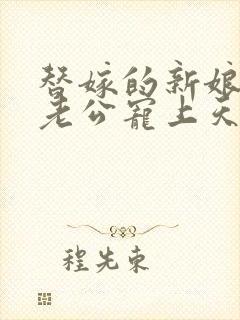 替嫁的新娘
老公寵上天
程先東